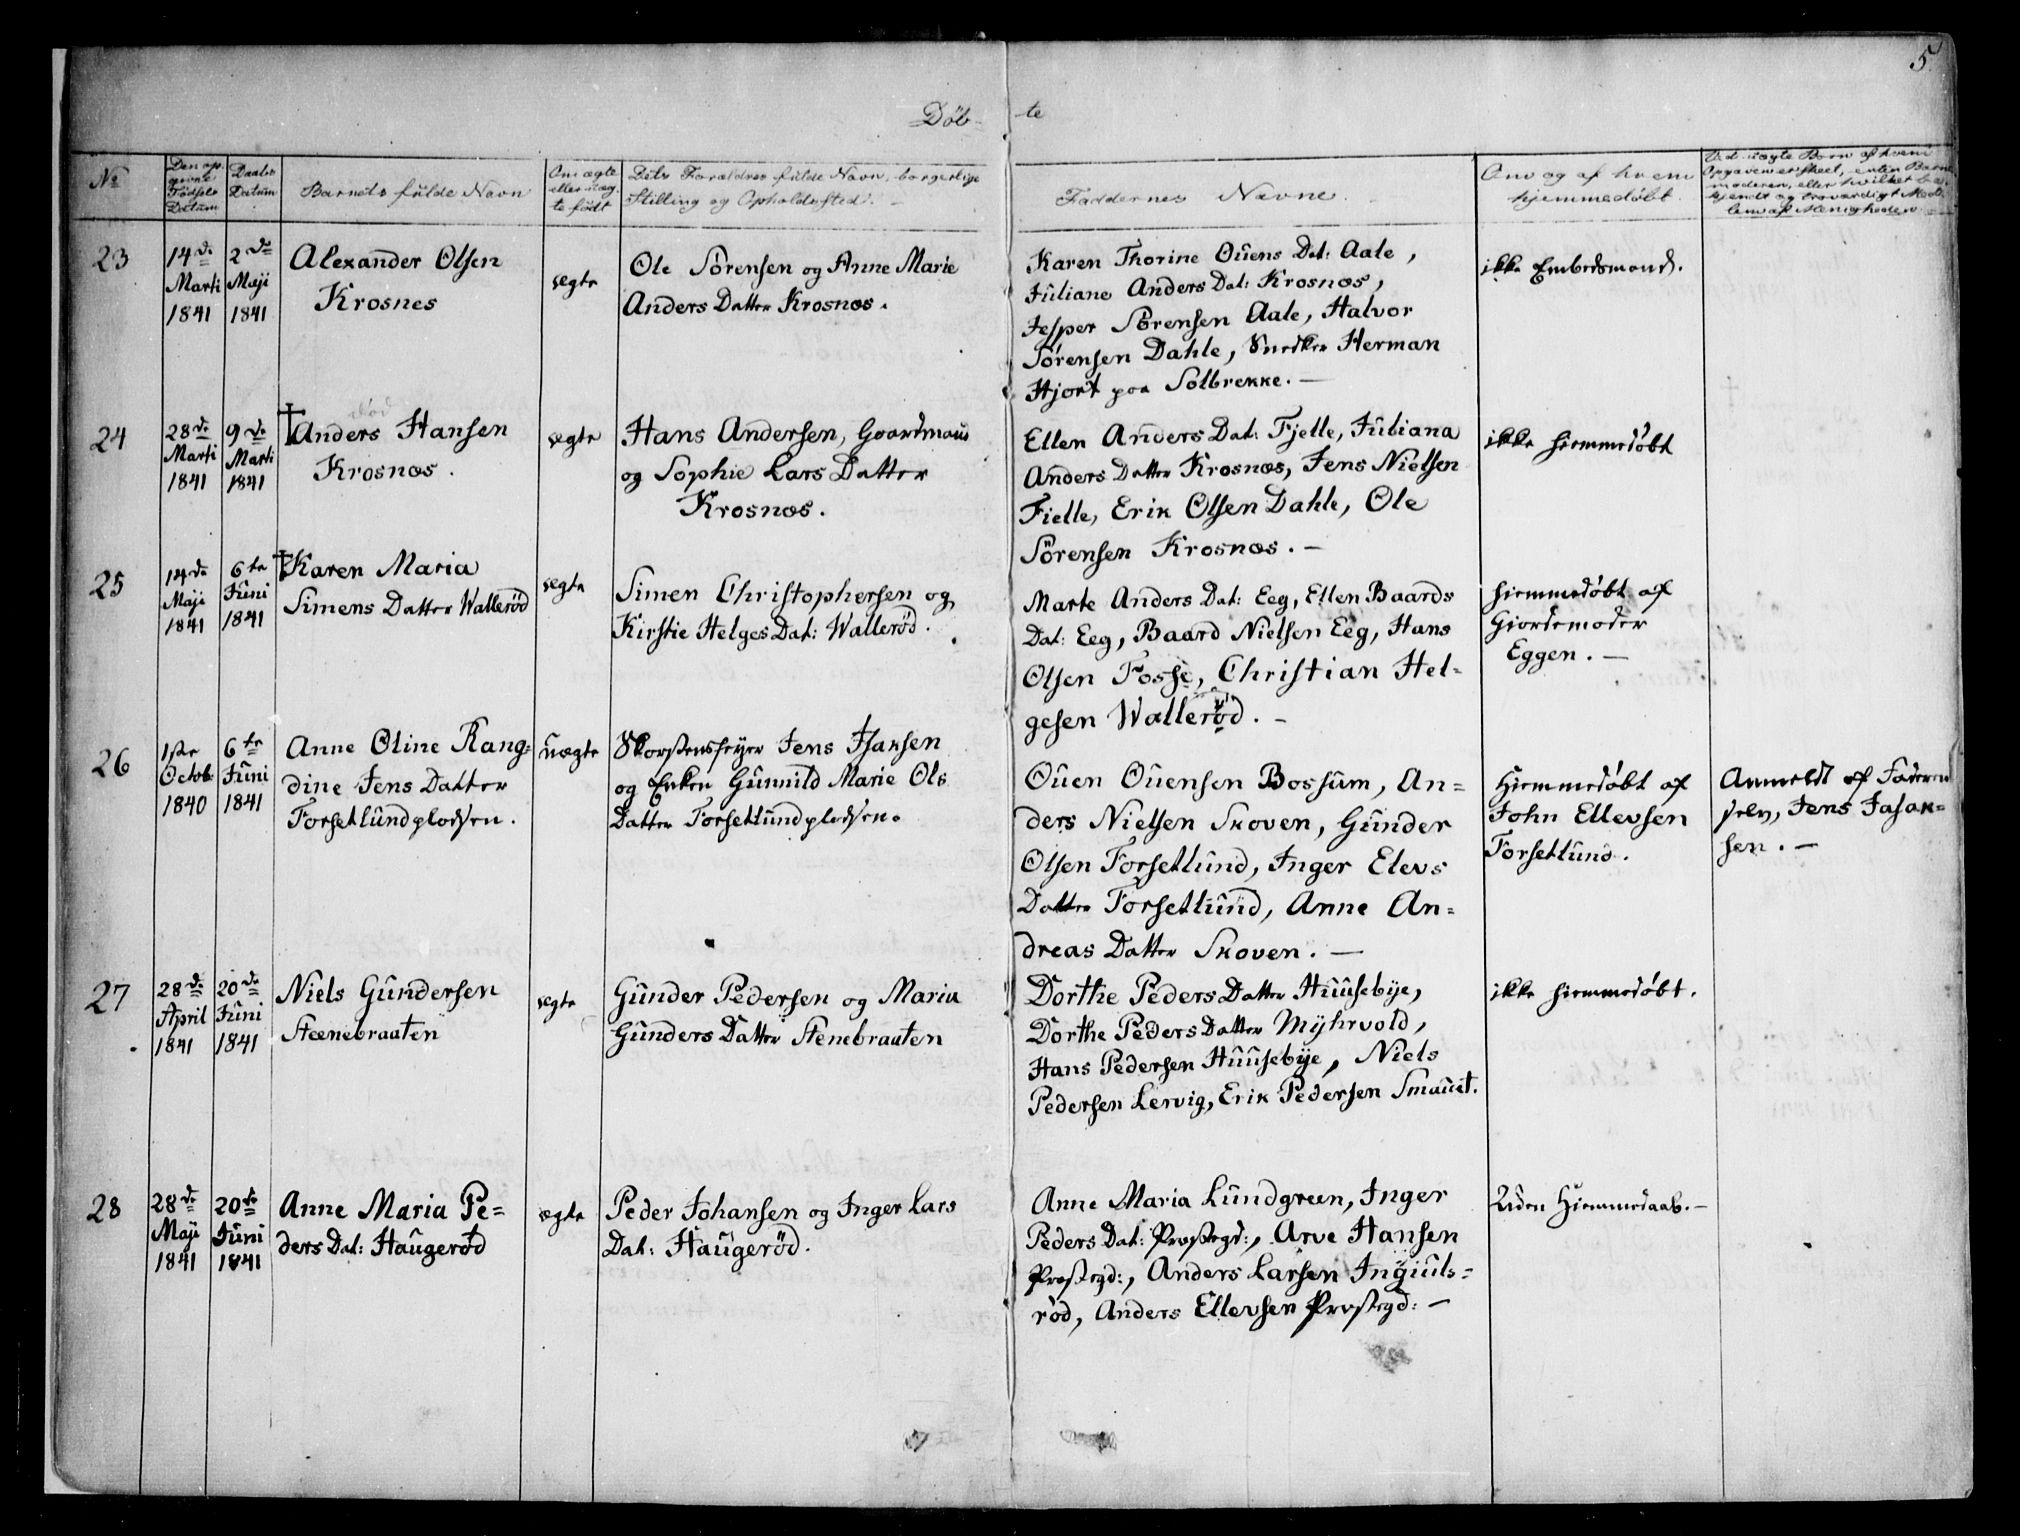 5.
Döb- te
No
Den op-
givne
Fødsels
Datum
Daabs
Datum
Barnets fulde Navn
Om ægte
eller uæg-
te født
Dets Forældres fulde Navn, borgerlige
Stilling og Opholdssted.
Faddernes Navne.
Om og af hvem
hjemmedøbt.
Ved uægte Børn af hvem
Opgaven er skeet, enten Barne-
moderen, eller hvilket be-
kjendt og troværdigt Med-
lem af Menigheden.
23
14de
Marti
1841
2de
Maji
1841
Alexander Olsen
Krosnes
ægte
Ole Sörensen og Anne Marie
Anders Datter Krosnæs.
Karen Thorine Ouens Dat: Aale,
Juliane Anders Dat: Krosnæs,
Jesper Sörensen Aale, Halvor
Sörensen Dahle, Snedker Herman
Hjort paa Solbrekke. —
ikke Embedsmand.
24
28de
Marti
1841
9de
Marti
1841
død
† Anders Hansen
Krosnæs.
ægte
Hans Andersen, Gaardmand
og Sophie Lars Datter
Krosnæs.
Ellen Anders Dat: Fjelle, Juliana
Anders Datter Krosnæs, Jens Nielsen
Fielle, Erik Olsen Dahle, Ole
Sörensen Krosnæs. —
ikke hiemmedøbt
25
14de
Maji
1841
6te
Juni
1841
† Karen Maria
Simens Datter Wallerød
ægte
Simen Christophersen og
Kirstie Helges Dat: Wallerød.
Marte Anders Dat: Eeg, Ellen Baards
Dat: Eeg, Baard Nielsen Eeg, Hans
Olsen Fosse, Christian Hel-
gesen Wallerød. —
hiemmedøbt af
Giordemoder
Eggen. —
26
1ste
Octob:
1840
6te
Juni
1841
Anne Oline Rang-
dine Jens Datter
Forsetlundpladsen.
uægte
Skorstensfeyer Jens Isaksen
og Enken Gunnild Marie Ols
Datter Forsetlundpladsen.
Ouen Ouensen Bossum, An=
ders Nielsen Skoven, Gunder
Olsen Forsetlund, Inger Elevs
Datter Forsetlund, Anne An=
dreas Datter Skoven. —
Hiemmedøbt af
John Ellevsen
Forsetlund.
Anmeldt af Faderen
selv, Jens Jasak=
sen. —
27
28de
April
1841
20de
Juni
1841
Niels Gundersen
Steenebraaten
ægte
Gunder Pedersen og Maria
Gunders Datter Stenebraaten
Dorthe Peders Datter Huusebye,
Dorthe Peders Datter Myhrvold,
Hans Pedersen Huusebye, Niels
Pedersen Lervig, Erik Pedersen Smauet.
ikke hiemmedøbt.
28
28de
Maji
1841
20de
Juni
1841
Anne Maria Pe=
ders Dat: Haugerød
ægte
Peder Johansen og Inger Lars
Dat: Haugerød.
Anne Maria Lundgreen, Inger
Peders Dat: Præstegd:, Arve Hansen
Præstegd:, Anders Larsen Ingiuls=
rød, Anders Ellevsen Præstegd: —
Uden Hiemmedaab. —